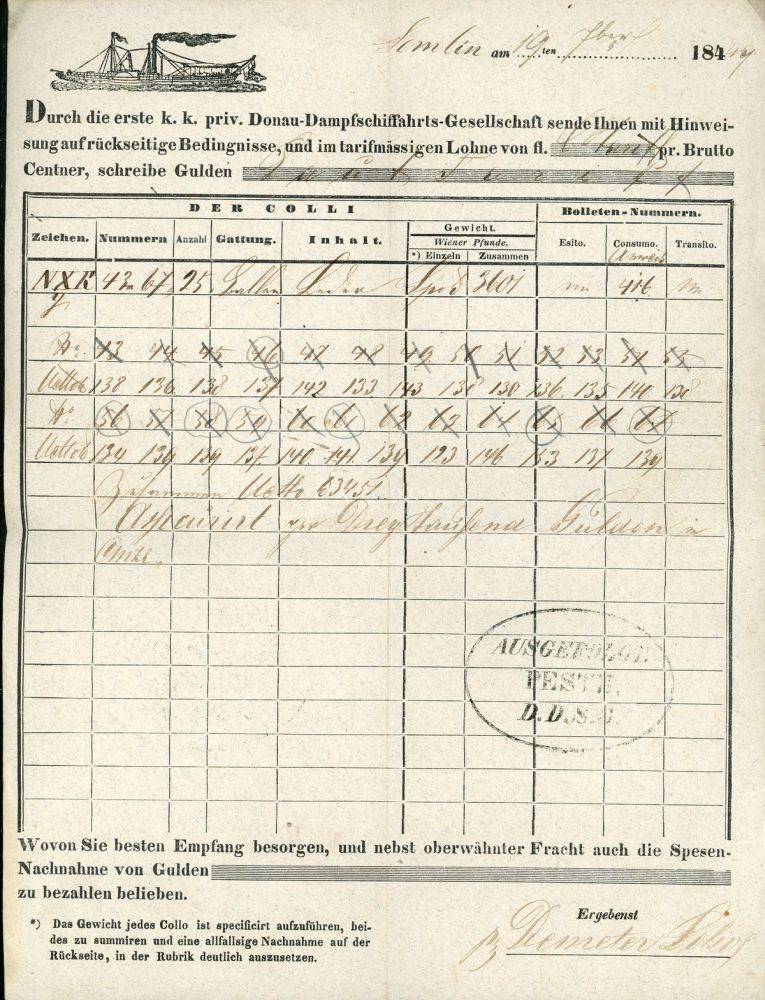 Semlin am 19ten 7ber 184
Durch die erste k. k. priv. Donau-Dampfschiffahrts-Gesellschaft sende Ihnen mit Hinwei-
sung auf rückseitige Bedingnisse, und im tarifmässigen Lohne von fl. pr. Brutto
Centner, schreibe Gulden Laut Tariff
DER COLLI Bolleten-Nummern.
Zeichen. Nummern Anzahl Gattung. Inhalt. Gewicht. Wiener Pfunde. *) Einzeln Zusammen Esito. Consumo. Transito.
NXK 43 67 25 Ballen Leder Spco 3601 416
No. 43 44 45 46 47 48 49 50 51 52 53 54 55
Netto 138 136 138 137 142 133 143 138 130 136 135 140 138
No 56 57 58 59 60 61 62 63 64 65 66 67
Netto 134 139 139 137 140 141 139 123 146 153 137 139
Zusammen Netto 3451
Assecurirt per Drey tausend Gulden in
AUSGEFOLGT.
PESTH.
D.D.S.G.
Wovon Sie besten Empfang besorgen, und nebst oberwähnter Fracht auch die Spesen-
Nachnahme von Gulden
zu bezahlen belieben.
*) Das Gewicht jedes Collo ist specificirt aufzuführen, bei-
des zu summiren und eine allfallsige Nachnahme auf der
Rückseite, in der Rubrik deutlich auszusetzen.
Ergebenst
Demeter